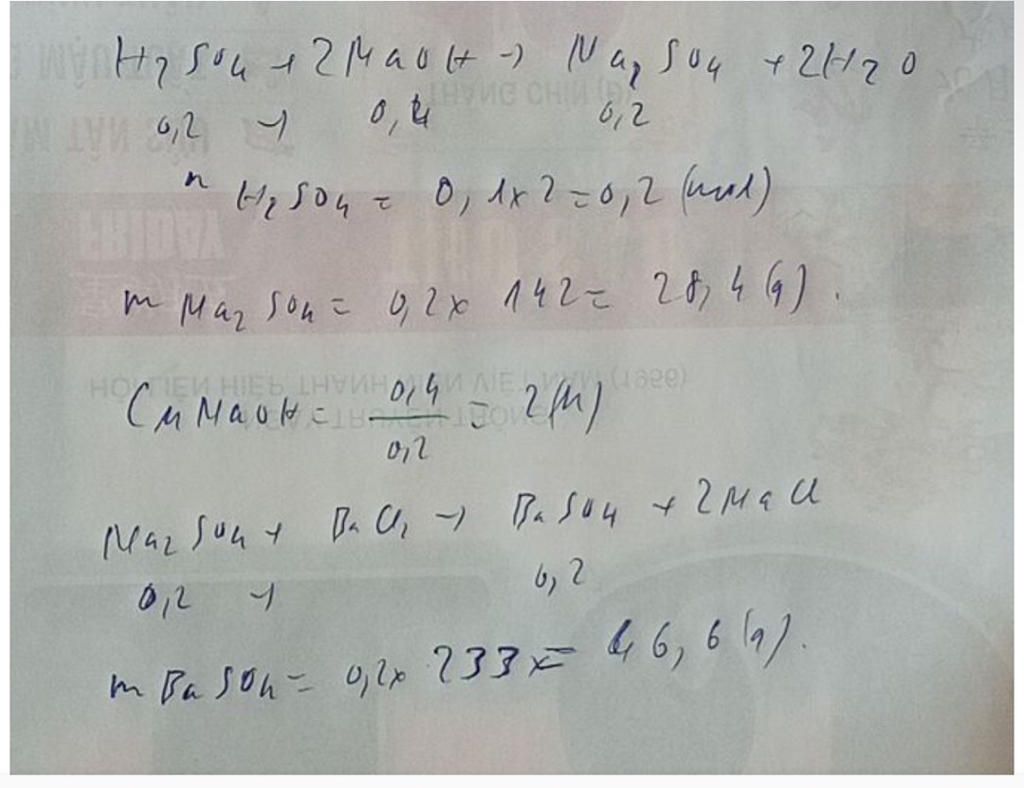 H2SO4 + 2NaOH → Na2SO4 + 2H2O
0,2 → 0,4 0,2
n H2SO4 = 0,1x2 = 0,2 (mol)
m Na2SO4 = 0,2x 142 = 28,4 (g).
CM NaOH = 0,4/0,2 = 2(M)
Na2SO4 + BaCl2 → BaSO4 + 2NaCl
0,2 → 0,2
m BaSO4 = 0,2x 233 = 46,6 (g).
HỘI LIÊN HIỆP THANH NIÊN VIỆT NAM (1956)
NGÀY TRUYỀN THỐNG
THÁNG CHÍN (Đ)